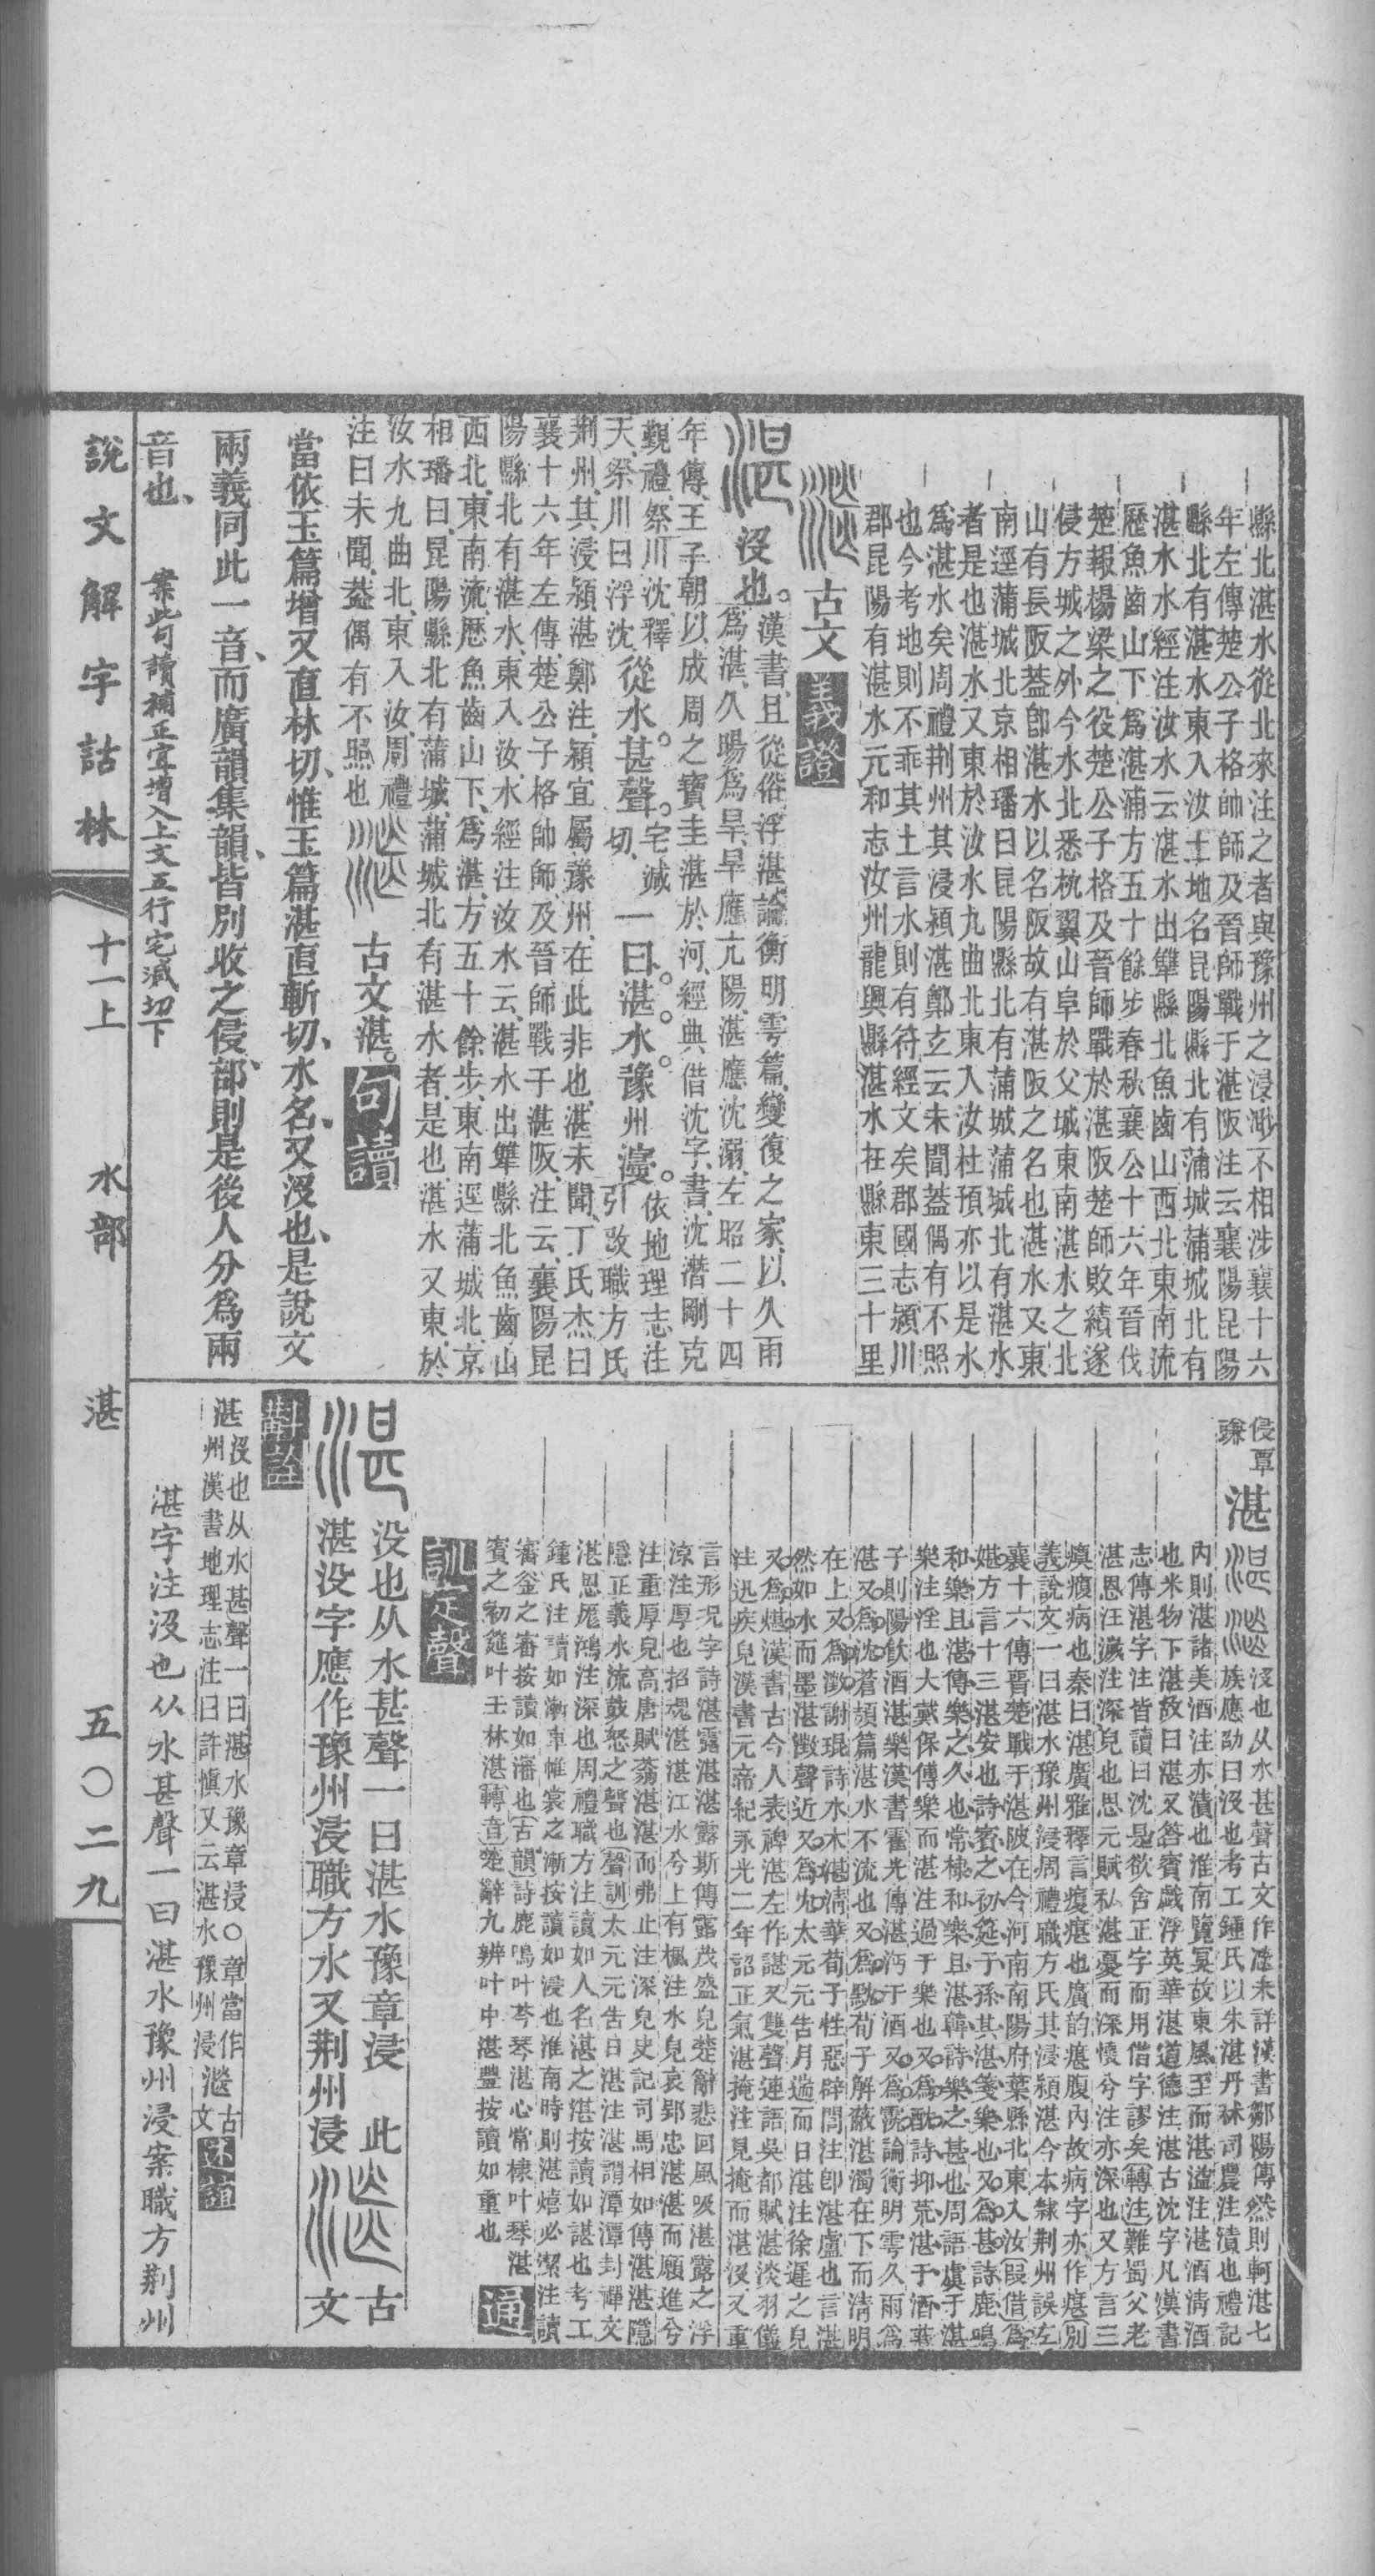 縣北湛水從北來注之者與豫州之浸渺不相涉襄十六
年左傳楚公子格帥師及晉師戰于湛阪注云襄陽昆陽
縣北有湛水東入汝土地名昆陽縣北有蒲城蒲城北有
湛水水經注汝水云湛水出犨縣北魚齒山西北東南流
歷魚齒山下為湛浦方五十餘步春秋襄公十六年晉伐
楚報楊梁之役楚公子格及晉師戰於湛阪楚師敗績遂
侵方城之外今水北悉枕翼山阜於父城東南湛水之北
山有長阪蓋卽湛水以名阪故有湛阪之名也湛水又東
南逕蒲城北京相璠曰昆陽縣北有蒲城蒲城北有湛水
者是也湛水又東於汝水九曲北東入汝杜預亦以是水
為湛水矣周禮荆州其浸潁湛鄭玄云未聞蓋偶有不照
也今考地則不乖其土言水則有符經文矣郡國志潁川
郡昆陽有湛水元和志汝州龍興縣湛水在縣東三十里
古文 義證
沒也。漢書、且從俗浮湛、論衡明雩篇、變復之家、以久雨
為湛、久暘為旱、旱應亢陽、湛應沈溺、左昭二十四
年傳、王子朝、以成周之寶圭湛於河、經典借沈字、書、沈潛剛克
覲禮、祭川沈、釋
天、祭川曰浮沈、從水。甚聲。宅減
切、一曰。湛。水。豫。州浸。依地理志注
引改職方氏
荆州、其浸潁湛、鄭注、潁宜屬豫州、在此非也、湛未聞、丁氏杰曰
襄十六年左傳、楚公子格帥師、及晉師戰于湛阪、注云、襄陽昆
陽縣北有湛水、東入汝、水經注汝水云、湛水出犨縣北魚齒山
西北、東南流、歷魚齒山下、為湛、方五十餘步、東南逕蒲城北、京
相璠曰、昆陽縣北有蒲城、蒲城北有湛水者、是也、湛水又東、於
汝水九曲北、東入汝、周禮
注曰未聞、蓋偶有不照也 古文湛。 句讀
當依玉篇增又直林切、惟玉篇湛直斬切、水名、又沒也、是說文
兩義同此一音、而廣韻集韻、皆別收之侵部、則是後人分為兩
音也、 案此句讀補正宜增入上文五行宅減切下
侵覃
湛 沒也从水甚聲古文作未詳漢書鄒陽傳然則軻湛七
族應劭曰沒也考工鍾氏以朱湛丹秫司農注漬也禮記
內則湛諸美酒注亦漬也淮南覽冥故東風至而湛溢注湛酒淸酒
也米物下湛故曰湛又答賓戲浮英華湛道德注湛古沈字凡漢書
志傳湛字注皆讀曰沈是欲舍正字而用借字謬矣轉注難蜀父老
湛恩汪濊注深皃也思元賦私湛憂而深懷兮注亦深也又方言三
別
義說文一曰湛水豫州浸周禮職方氏其浸潁湛今本隸荆州誤左
襄十六傳晉楚戰于湛陂在今河南南陽府葉縣北東入汝叚借為
媅方言十三湛安也詩賓之初筵子孫其湛箋樂也又為甚詩鹿鳴
和樂且湛傳樂之久也常棣和樂且湛韓詩樂之甚也周語虞于湛
樂注淫也大戴保傅樂而湛注過于樂也又為酖詩抑荒湛于酒
子則陽飲酒湛樂漢書霍光傳湛沔于酒又為霃論衡明雩久雨為
湛又為沈蒼頡篇湛水不流也又為黕荀子解蔽湛濁在下而淸明
在上又為澂謝琨詩水木湛淸華荀子性惡辟閭注卽湛盧也言湛
然如水而墨湛澂聲近又為尢太元元吿月遄而日湛注徐遲之皃
又為媅漢書古今人表裨湛左作諶又雙聲連語吳都賦湛淡羽儀
注迅疾皃漢書元帝紀永光二年詔正氣湛掩注見掩而湛沒又重
言形況字詩湛露湛湛露斯傳露茂盛皃楚辭悲回風吸湛露之浮
涼注厚也招魂湛湛江水兮上有楓注水皃哀郢忠湛湛而願進兮
注重厚皃高唐賦滃湛湛而弗止注深皃史記司馬相如傳湛湛隱
隱正義水流鼓怒之聲也聲訓太元元吿日湛注湛謂潭潭封禪文
湛恩厖鴻注深也周禮職方注讀如人名湛之湛按讀如諶也考工
鍾氏注讀如漸車帷裳之漸按讀如浸也淮南時則湛熺必潔注讀
審釜之審按讀如瀋也古韻詩鹿鳴叶芩琴湛心常棣叶琴湛
賓之初筵叶壬林湛轉音楚辭九辨叶中湛豐按讀如重也 通
訓定聲
没也从水甚聲一曰湛水豫章浸 此古
湛没字應作豫州浸職方水又荆州浸 文
斠詮
湛 沒也从水甚聲一曰湛水豫章浸〇章當作
州漢書地理志注曰許愼又云湛水豫州浸 古
文 述誼
湛字注沒也从水甚聲一曰湛水豫州浸案職方荆州
說文解字詁林 十一上 水部 湛 五〇二九